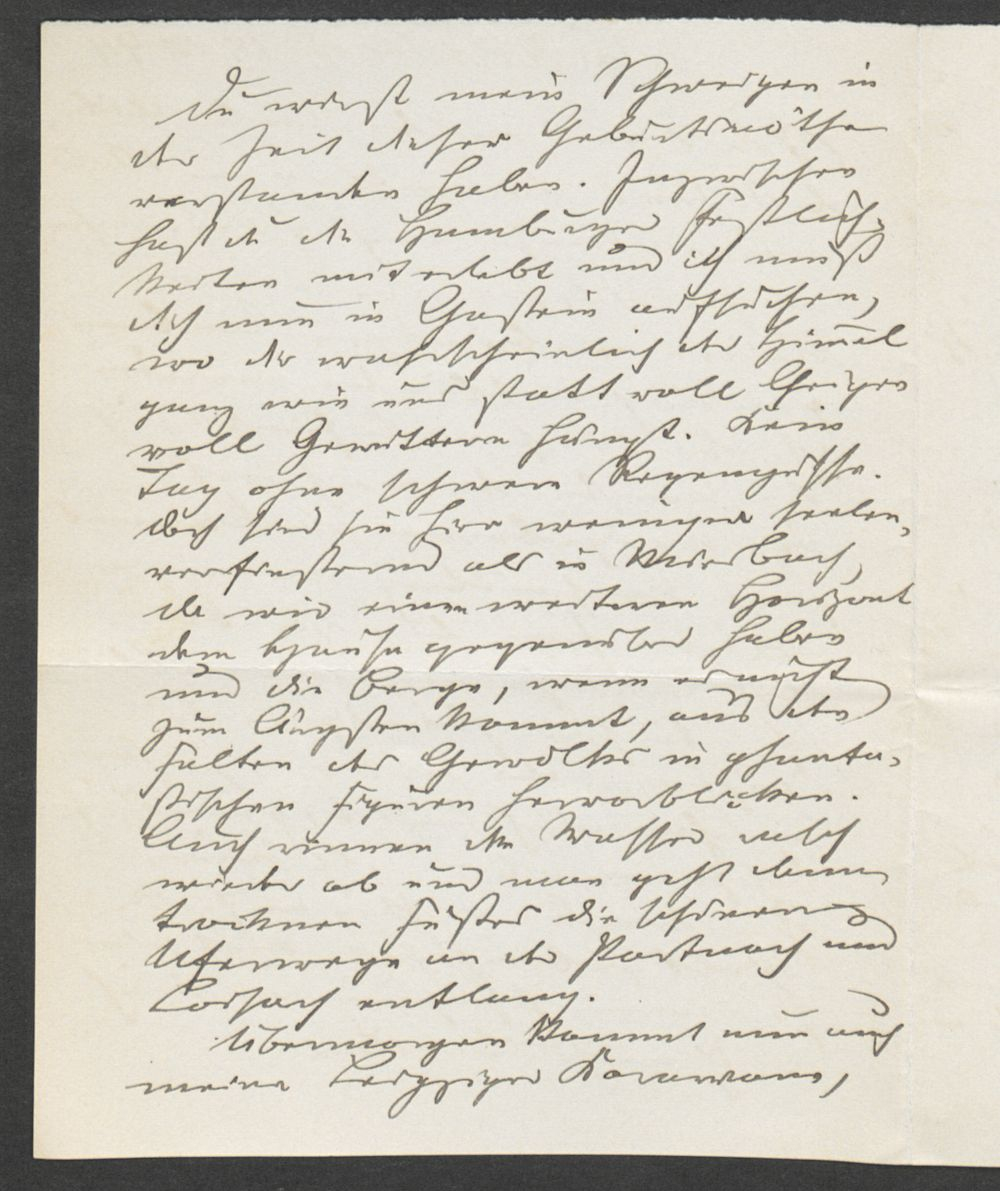 Du wirst mein Schweigen in
der Zeit dieser Geburtsnöthe
verstanden haben. Inzwischen
hast du die Hamburger Festlich-
keiten miterlebt und ich muß
dich nun in Gastein aufsuchen,
wo dir wahrscheinlich der Himmel
ganz wie uns statt voll Geigen
voll Gewittern hängt. Kein
Tag ohne schwere Regengüsse.
Doch sind sie hier weniger seelen-
verfinsternd als in Miesbach,
da wir einen weiteren Horizont
dem Hause gegenüber haben
und die Berge, wenn es nicht
zum Ärgsten kommt, aus den
Falten des Gewölkes in phanta-
stischen Figuren hervorblicken.
Auch rinnen die Wasser rasch
wieder ab und man geht dann
trocknen Fußes die schönen
Uferwege an der Partnach und
Loisach entlang.
Übermorgen kommt nun auch
meine Leipziger Karawane,